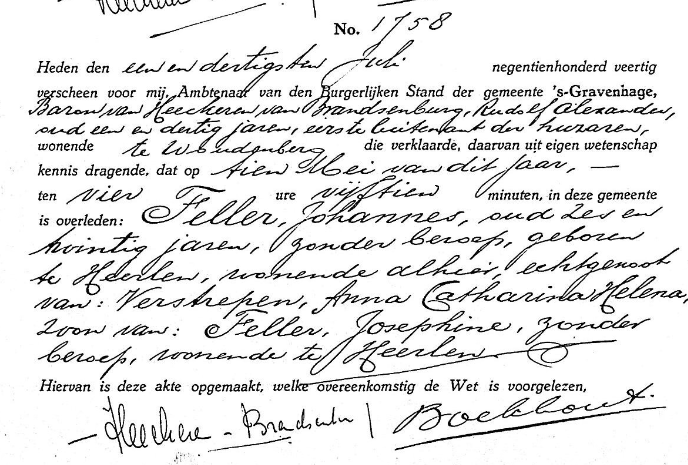 No. 1758
Heden den een en dertigsten Juli negentienhonderd veertig
verscheen voor mij, Ambtenaar van den Burgerlijken Stand der gemeente 's-Gravenhage,
Baron van Heeckeren van Brandsenburg, Rudolf Alexander,
oud een en dertig jaren, eerste luitenant der huzaren,
wonende te Woudenberg die verklaarde, daarvan uit eigen wetenschap
kennis dragende, dat op tien Mei van dit jaar, —
ten vier ure vijftien minuten, in deze gemeente
is overleden: Feller, Johannes, oud zes en
twintig jaren, zonder beroep, geboren
te Heerlen, wonende alhier, echtgenoot
van: Verstrepen, Anna Catharina Helena,
zoon van: Feller, Josephine, zonder
beroep, wonende te Heerlen.
Hiervan is deze akte opgemaakt, welke overeenkomstig de Wet is voorgelezen,
Boekhout.